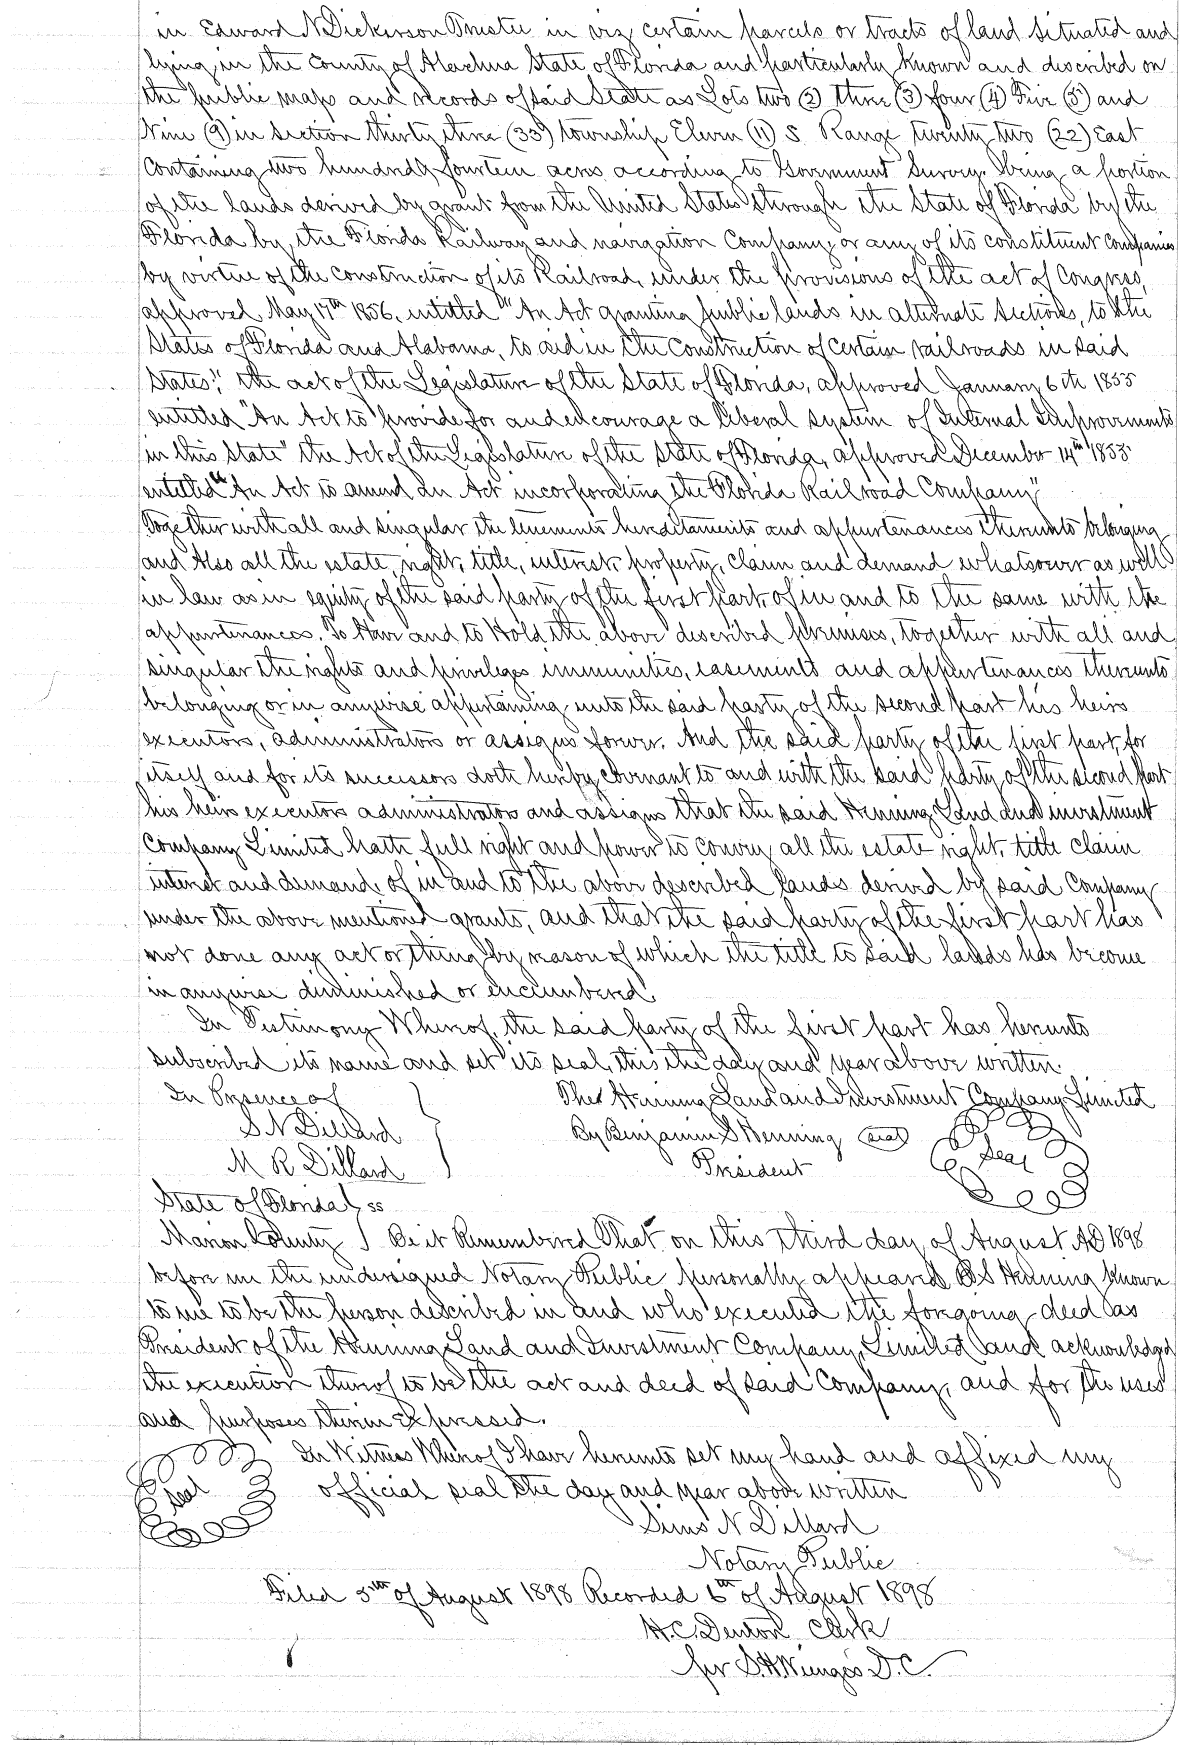 in Edward N Dickerson Trustee in viz certain parcels or tracts of land situated and
lying in the County of Alachua State of Florida and particularly known and described on
the public maps and records of said State as Lots two (2) three (3) four (4) Five (5) and
Nine (9) in section thirty three (33) township Eleven (11) S Range twenty two (22) East
Containing two hundred & fourteen acres according to Government Survey. Being a portion
of the lands derived by grant from the United States through the State of Florida by the
Florida by the Florida Railway and navigation Company, or any of its constituent Companies
by virtue of the construction of its Railroad, under the provisions of the act of Congress,
approved May 17th 1856, entitled "An Act granting public lands in alternate sections, to the
States of Florida and Alabama, to aid in the construction of certain railroads in said
States," the act of the Legislature of the State of Florida, approved January 6th 1855
entitled "An Act to provide for and encourage a liberal system of Internal Improvements
in this State" the Act of the Legislature of the State of Florida, approved December 14th 1855
entitled "An Act to amend an Act incorporating the Florida Railroad Company"
Together with all and singular the tenements hereditaments and appurtenances thereunto belonging
and Also all the estate, right, title, interest, property, claim and demand whatsoever as well
in law as in equity of the said party of the first part, of in and to the same with the
appurtenances. To Have and to Hold the above described premises, together with all and
singular the rights and privileges immunities, easements and appurtenances thereunto
belonging or in anywise appertaining unto the said party of the second part his heirs
executors, administrators or assigns forever. And the said party of the first part, for
itself and for its successors doth hereby covenant to and with the said party of the second part
his heirs executors administrators and assigns that the said Henning Land and investment
Company Limited hath full right and power to convey all the estate right, title claim
interest and demand, of in and to the above described lands derived by said Company
under the above mentioned grants, and that the said party of the first part has
not done any act or thing by reason of which the title to said lands has become
in anywise diminished or encumbered.
In Testimony Whereof, the said party of the first part has hereunto
subscribed its name and set its seal, this the day and year above written.
In Presence of The Henning Land and Investment Company Limited
S N Dillard By Benjamin S Henning seal Seal
M R Dillard President
State of Florida } ss
Marion County } Be it Remembered That on this third day of August AD 1898
before me the undersigned Notary Public personally appeared B S Henning known
to me to be the person described in and who executed the forgoing deed as
President of the Henning Land and Investment Company, Limited and acknowledged
the execution thereof to be the act and deed of said Company, and for the uses
and purposes therein Expressed.
In Witness Whereof I have hereunto set my hand and affixed my
Seal official seal the day and year above written
Sims N Dillard
Notary Public
Filed 5th of August 1898 Recorded 6th of August 1898
H.C. Denton Clerk
per S.H. Wienges D.C.